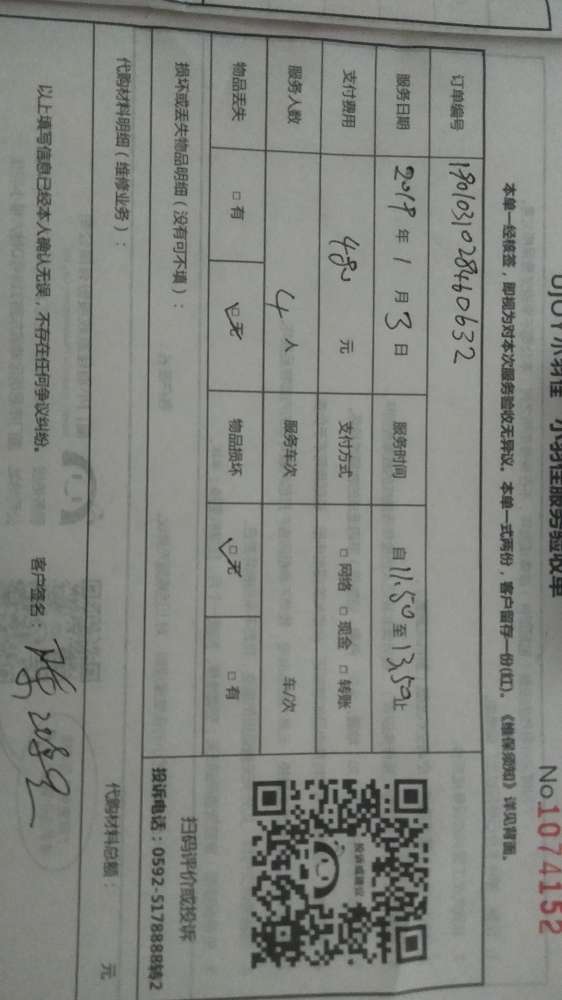 UJOY小羽佳 小羽佳服务验收单
No.1074152
本单一经核签，即视为对本次服务验收无异议。本单一式两份，客户留存一份(红)。《维保须知》详见背面。
订单编号 19010310284460632
服务日期 2019年1月3日 服务时间 自11.50至13.50止
支付费用 480元 支付方式 □网络 □现金 □转账
服务人数 4人 服务车次 车/次
物品丢失 □有 ☑无 物品损坏 ☑无 □有
损坏或丢失物品明细（没有可不填）：
投诉或建议
扫码评价或投诉
投诉电话：0592-5178888转2
代购材料明细（维修业务）： 代购材料总额： 元
以上填写信息已经本人确认无误，不存在任何争议纠纷。 客户签名：